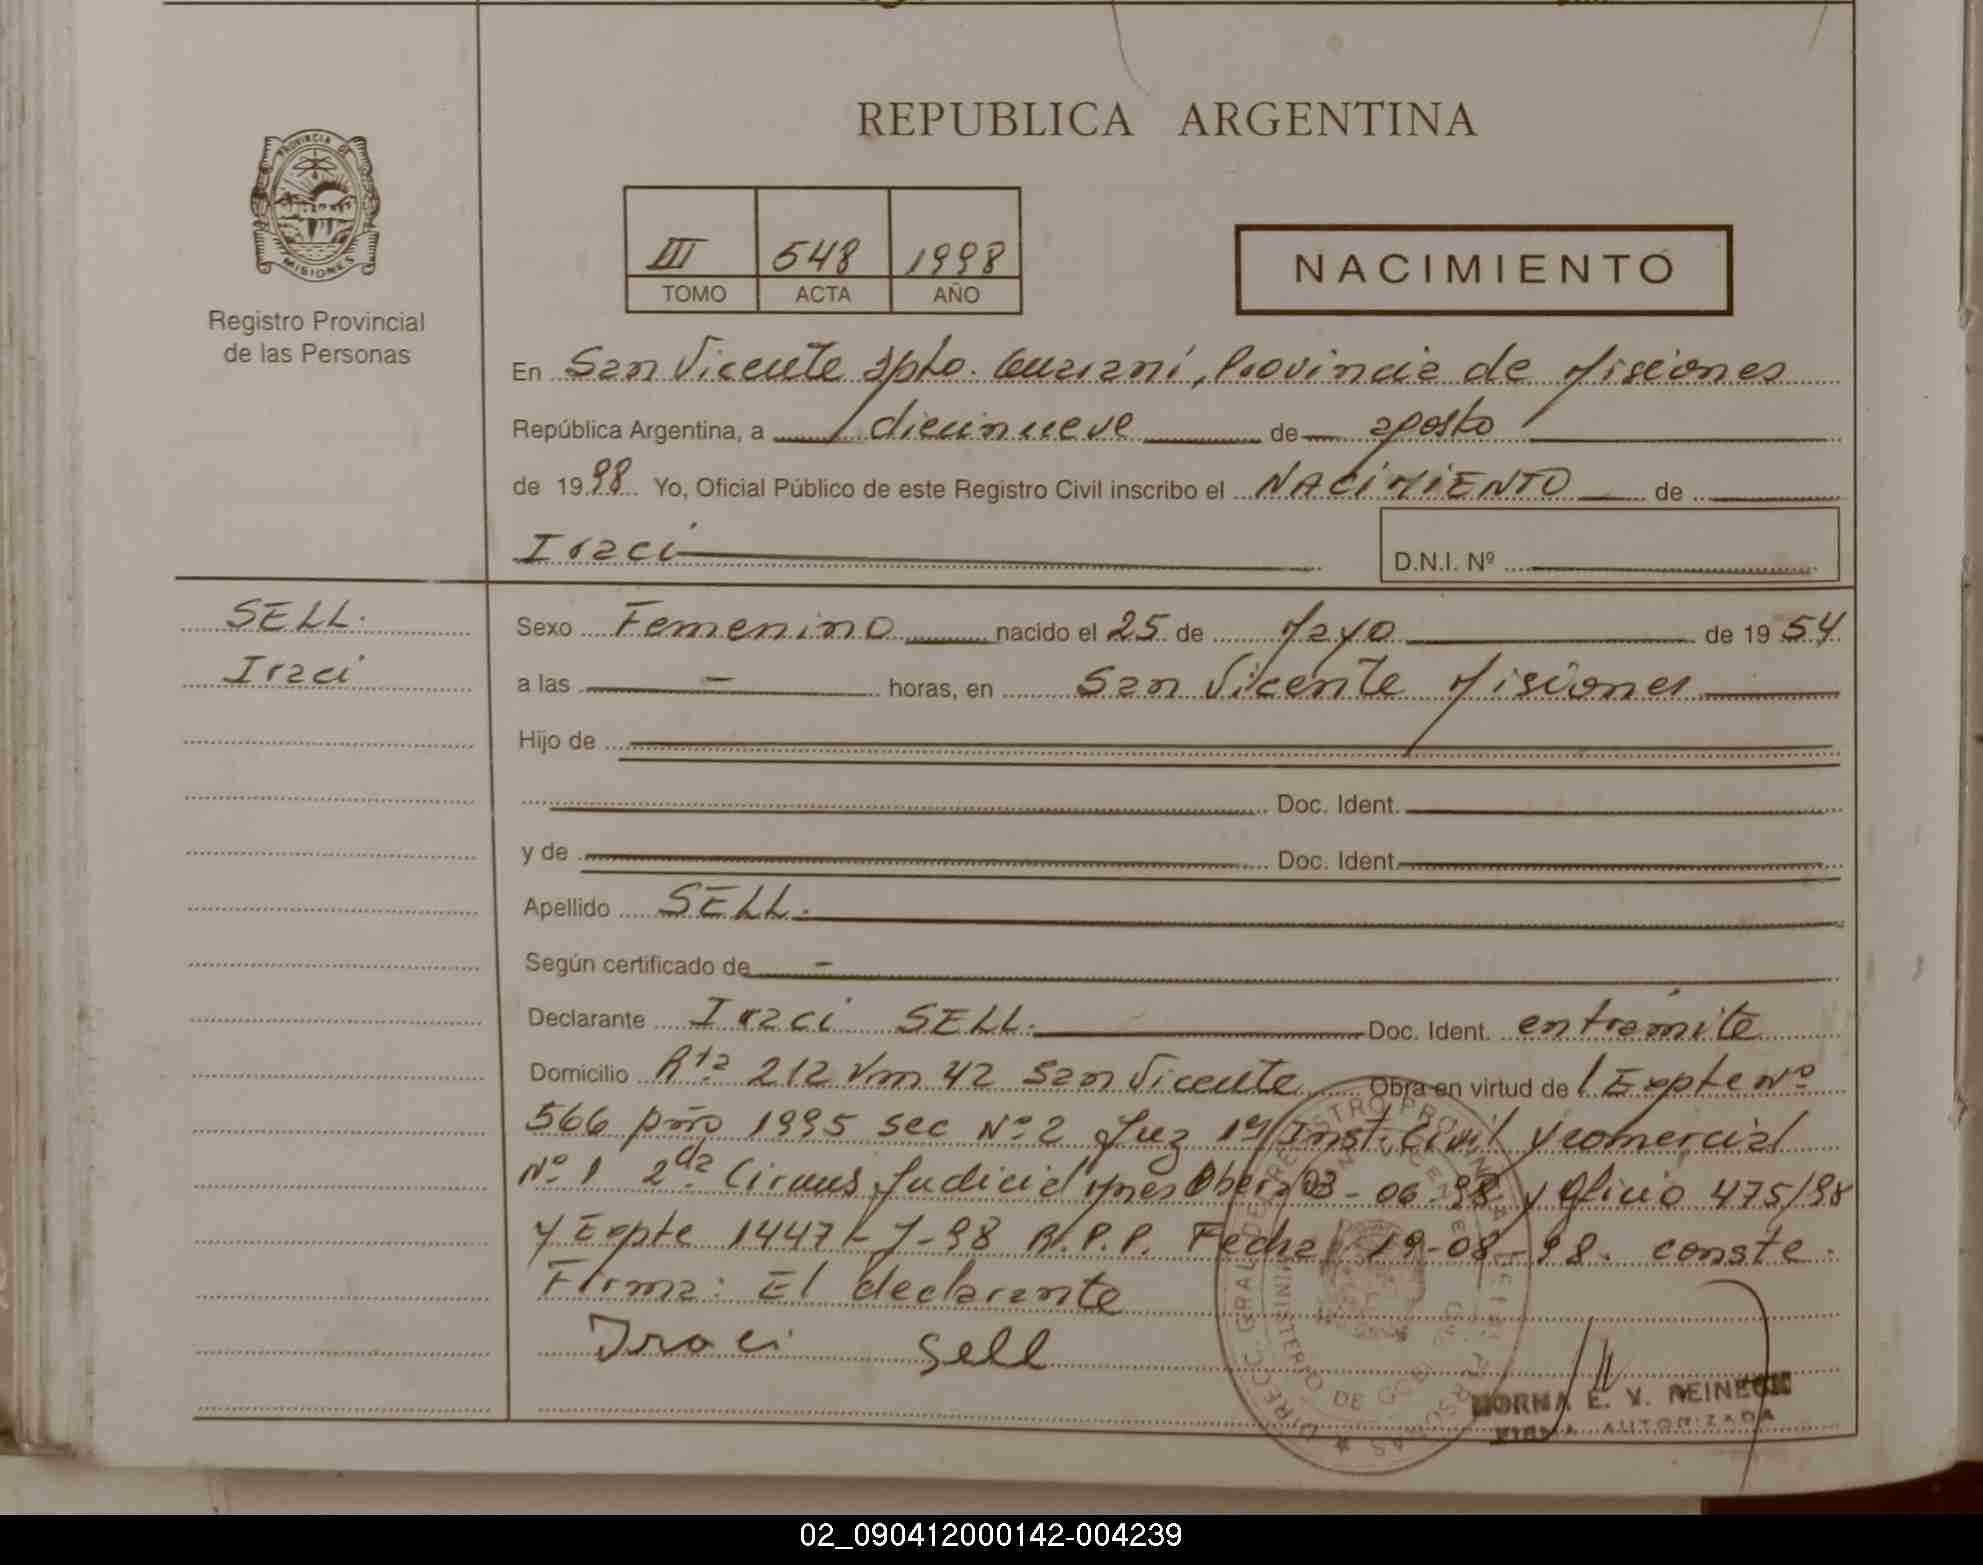 REPUBLICA ARGENTINA
PROVINCIA DE
MISIONES
Registro Provincial
de las Personas
III 548 1998
TOMO ACTA AÑO
NACIMIENTO
En San Vicente Dpto. Guaraní, Provincia de Misiones
República Argentina, a diecinueve de agosto
de 1998 Yo, Oficial Público de este Registro Civil inscribo el NACIMIENTO de
Iraci D.N.I. Nº
SELL.
Iraci
Sexo Femenino nacido el 25 de Mayo de 1954
a las - horas, en San Vicente Misiones
Hijo de
Doc. Ident.
y de Doc. Ident.
Apellido SELL.
Según certificado de -
Declarante Iraci SELL. Doc. Ident. en tramite
Domicilio Rta 212 Km 42 San Vicente Obra en virtud de Expte Nº
566 año 1995 Sec Nº 2 Juz 1º Inst. Civil y comercial
Nº 1 2da Circuns Judicial Mnes Obera 03-06-98 y Oficio 475/98
y Expte 1447-J-98 R.P.P. Fecha 19-08-98. conste.
Firma: El declarante
Iraci Sell
NORMA E. V. REINECK
FIRMA AUTORIZADA
02_090412000142-004239